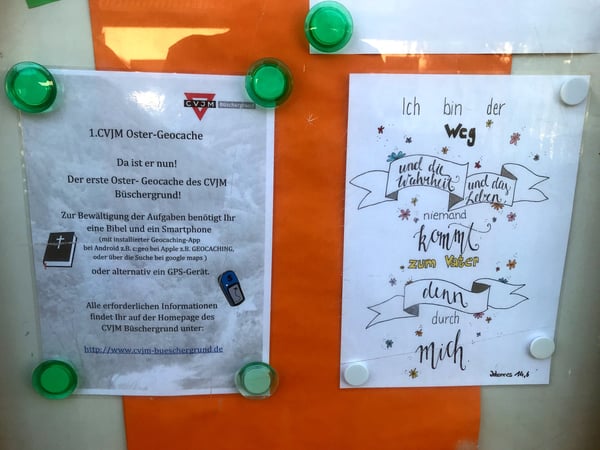 CVJM Büschergrund
1.CVJM Oster-Geocache
Da ist er nun!
Der erste Oster- Geocache des CVJM
Büschergrund!
Zur Bewältigung der Aufgaben benötigt Ihr
eine Bibel und ein Smartphone
(mit installierter Geocaching-App
bei Android z.B. c:geo bei Apple z.B. GEOCACHING,
oder über die Suche bei google maps )
oder alternativ ein GPS-Gerät.
Alle erforderlichen Informationen
findet Ihr auf der Homepage des
CVJM Büschergrund unter:
http://www.cvjm-bueschergrund.de
Ich bin der
Weg
und die
Wahrheit
und das
Leben,
niemand
kommt
zum Vater
denn
durch
mich
Johannes 14,6